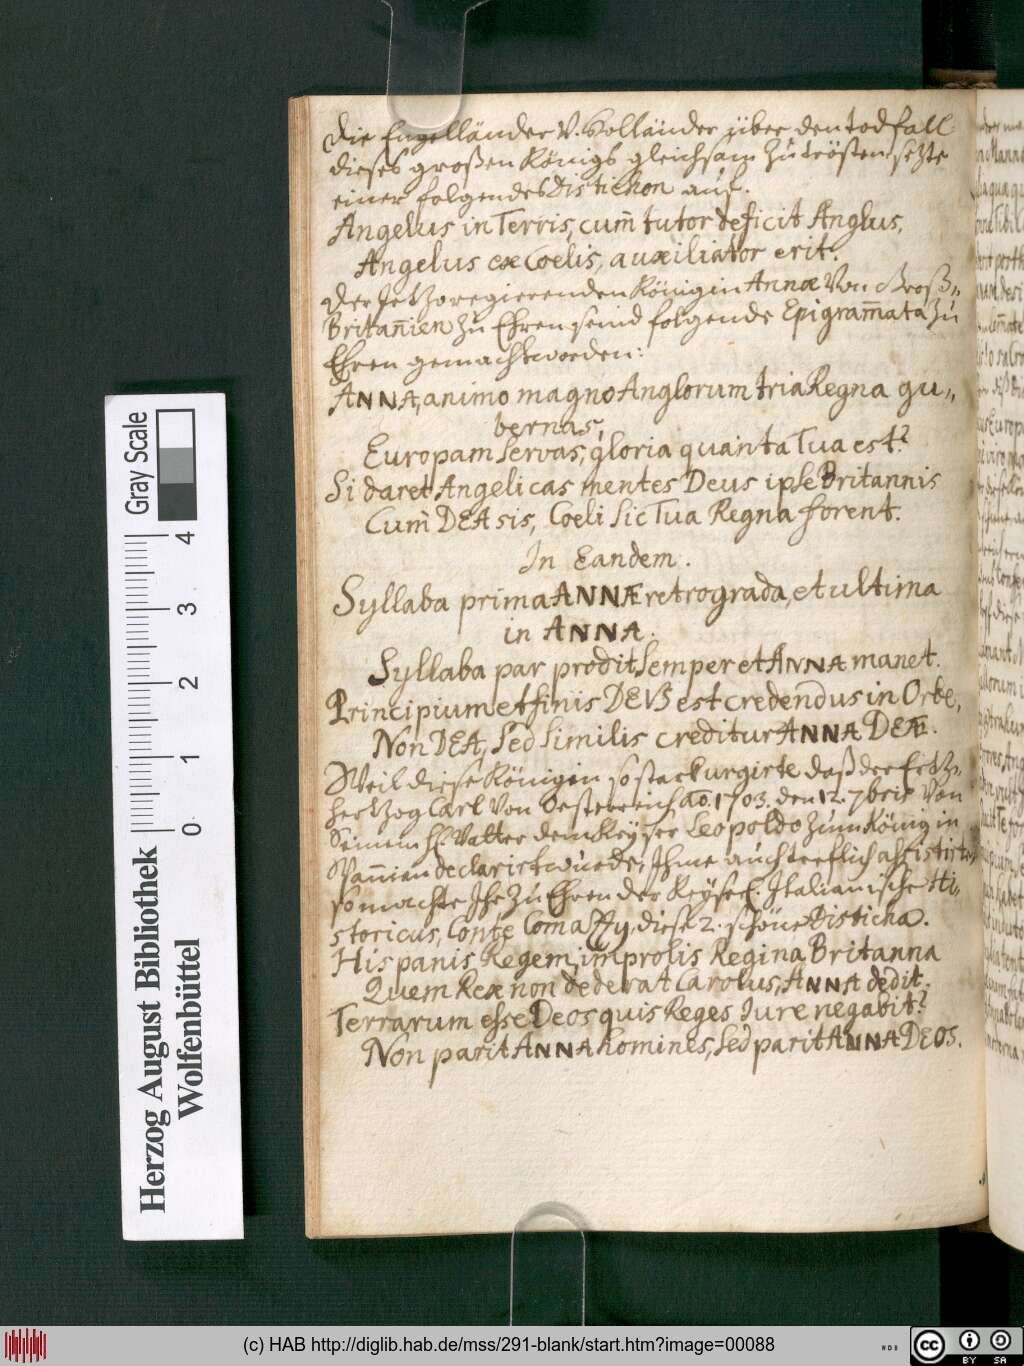 Die Engelländer v. Holländer über den todfall
dieses großen Königs gleichsam zu trösten setzte
einer folgendes Distichon auf.
Angelus in Terris, cum̄ tutor deficit Anglus,
Angelus ex Coelis, auxiliator erit.
Der Jetzo regierenden Königin Annæ von Groß-
Britan̄ien zu Ehren seind folgende Epigram̄ata zu
Ehren gemacht worden:
ANNA, animo magno Anglorum tria Regna gu-
bernas,
Europam servas; gloria quanta Tua est?
Si daret Angelicas mentes Deus ipse Britannis
Cum DEA sis, Coeli sic Tua Regna forent.
In Eandem.
Syllaba prima ANNÆ retrograda, et ultima
in ANNA.
Syllaba par prodit, semper et ANNA manet.
Principium et finis DEUS est credendus in Orbe,
Non DEA, sed similis creditur ANNA DEÆ.
Weil diese Königin so starck urgirte daß der Ertz-
hertzog Carl von Oesterreich ao. 1703. den 12. 7bris von
Seinem H. Vatter dem Keyser Leopoldo zum König in
Span̄ien declarirt wurde, Ihme auch trefflich assistirte,
so machte Ihr zu Ehren der Keyserl. Italianische Hi-
storicus, Conte Comazzy, diese 2. schöne Disticha.
Hispanis Regem, improlis Regina Britanna
Quem Rex non dederat Carolus, ANNA dedit.
Terrarum esse Deos quis Reges Iure negabit?
Non parit ANNA homines, sed parit ANNA DEOS.
Gray Scale
4
3
2
1
0
Herzog August Bibliothek
Wolfenbüttel
(c) HAB http://diglib.hab.de/mss/291-blank/start.htm?image=00088
WDB
CC BY SA